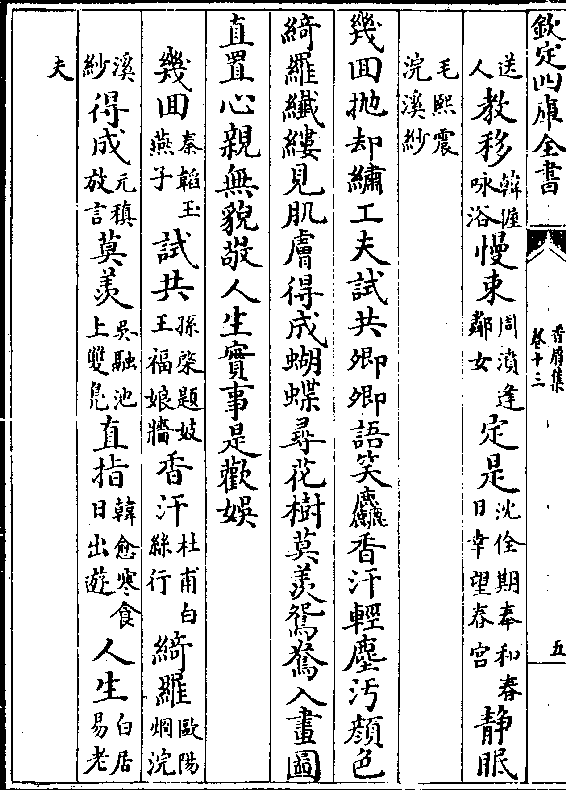 欽定四庫全書
香屑集
卷十三
五
送人教移韓偓咏浴慢束周濆逢鄰女定是沈佺期奉和春日幸望春宫靜眠
毛熙震浣溪紗
幾回拋却繡工夫試共卿卿語笑麤香汗輕塵汚顔色
綺羅纖縷見肌膚得成蝴蝶尋花樹莫羨鴛鴦入畫圖
直置心親無貌敬人生實事是歡娛
幾回秦韜玉燕子試共孫棨題妓王福娘牆香汗杜甫白絲行綺羅歐陽烱浣
溪紗得成元稹放言莫羨吳融池上雙鳧直指韓愈寒食日出遊人生白居易老
夫